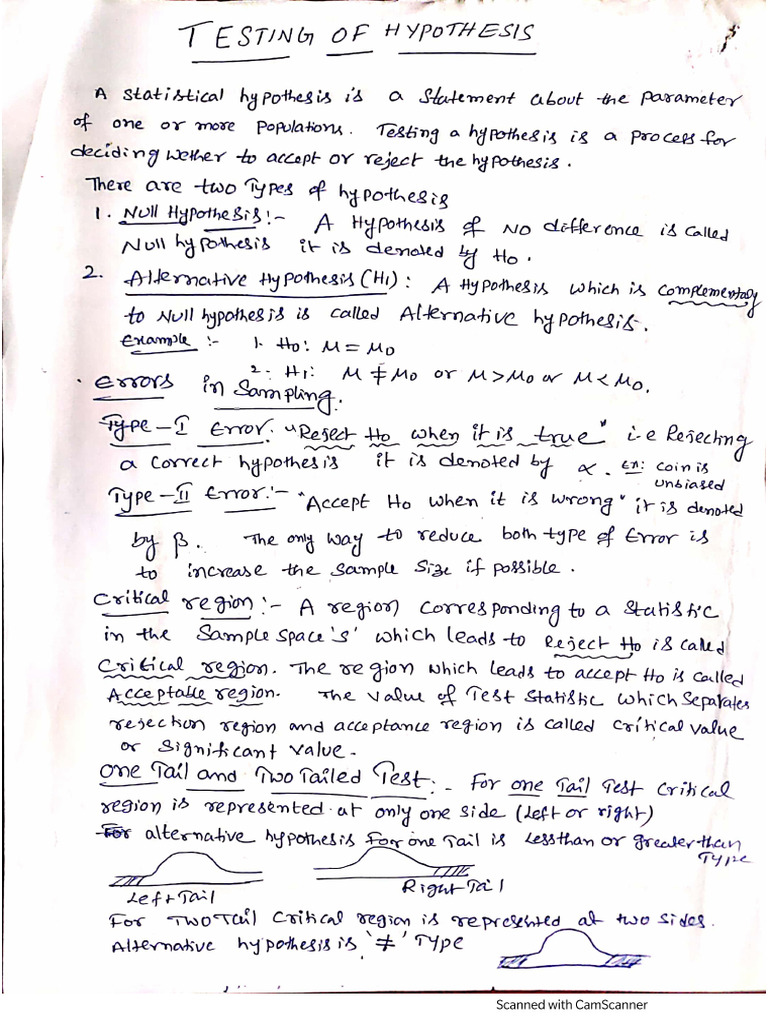 TESTING OF HYPOTHESIS
A Statistical hypothesis is a Statement about the parameter
of one or more populations. Testing a hypothesis is a process for
deciding wether to accept or reject the hypothesis.
There are two Types of hypothesis
1. Null Hypothesis:- A Hypothesis of No difference is called
Null hypothesis it is denoted by H0.
2. Alternative Hypothesis (H1): A Hypothesis which is complementary
to Null hypothesis is called Alternative hypothesis.
Example :- 1. H0: μ = μ0
2. H1: μ ≠ μ0 or μ > μ0 or μ < μ0.
Errors in Sampling.
Type-I Error: "Reject H0 when it is true" i.e Rejecting
a correct hypothesis it is denoted by α. Ex: coin is
unbiased
Type-II Error:- "Accept H0 when it is wrong" it is denoted
by β. The only way to reduce both type of Error is
to increase the sample size if possible.
Critical region:- A region corresponding to a statistic
in the Sample space 's' which leads to Reject H0 is called
Critical region. The region which leads to accept H0 is called
Acceptable region. The value of Test Statistic which separates
rejection region and acceptance region is called critical value
or significant value.
One Tail and Two Tailed Test:- For one Tail Test Critical
region is represented at only one side (left or right)
For alternative hypothesis for one Tail is Lessthan or greater than
Type
Left Tail
Right Tail
For Two Tail critical region is represented at two sides.
Alternative hypothesis is '≠' Type
Scanned with CamScanner